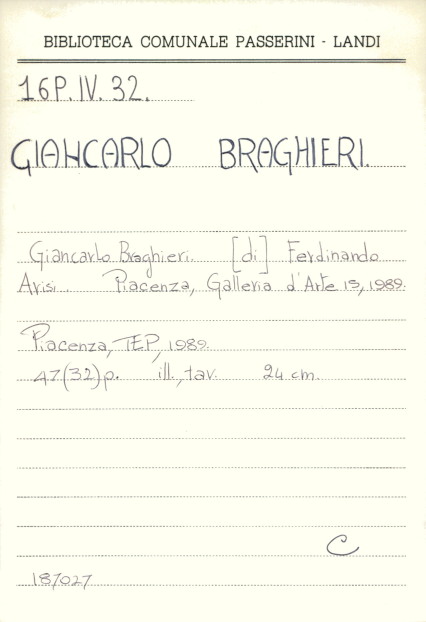 BIBLIOTECA COMUNALE PASSERINI - LANDI
16P. IV. 32.
GIANCARLO BRAGHIERI.
Giancarlo Braghieri. [di] Ferdinando
Arisi. Piacenza, Galleria d'Arte 15, 1989.
Piacenza, TEP, 1989.
47(32)p. ill., tav. 24 cm.
C
187027